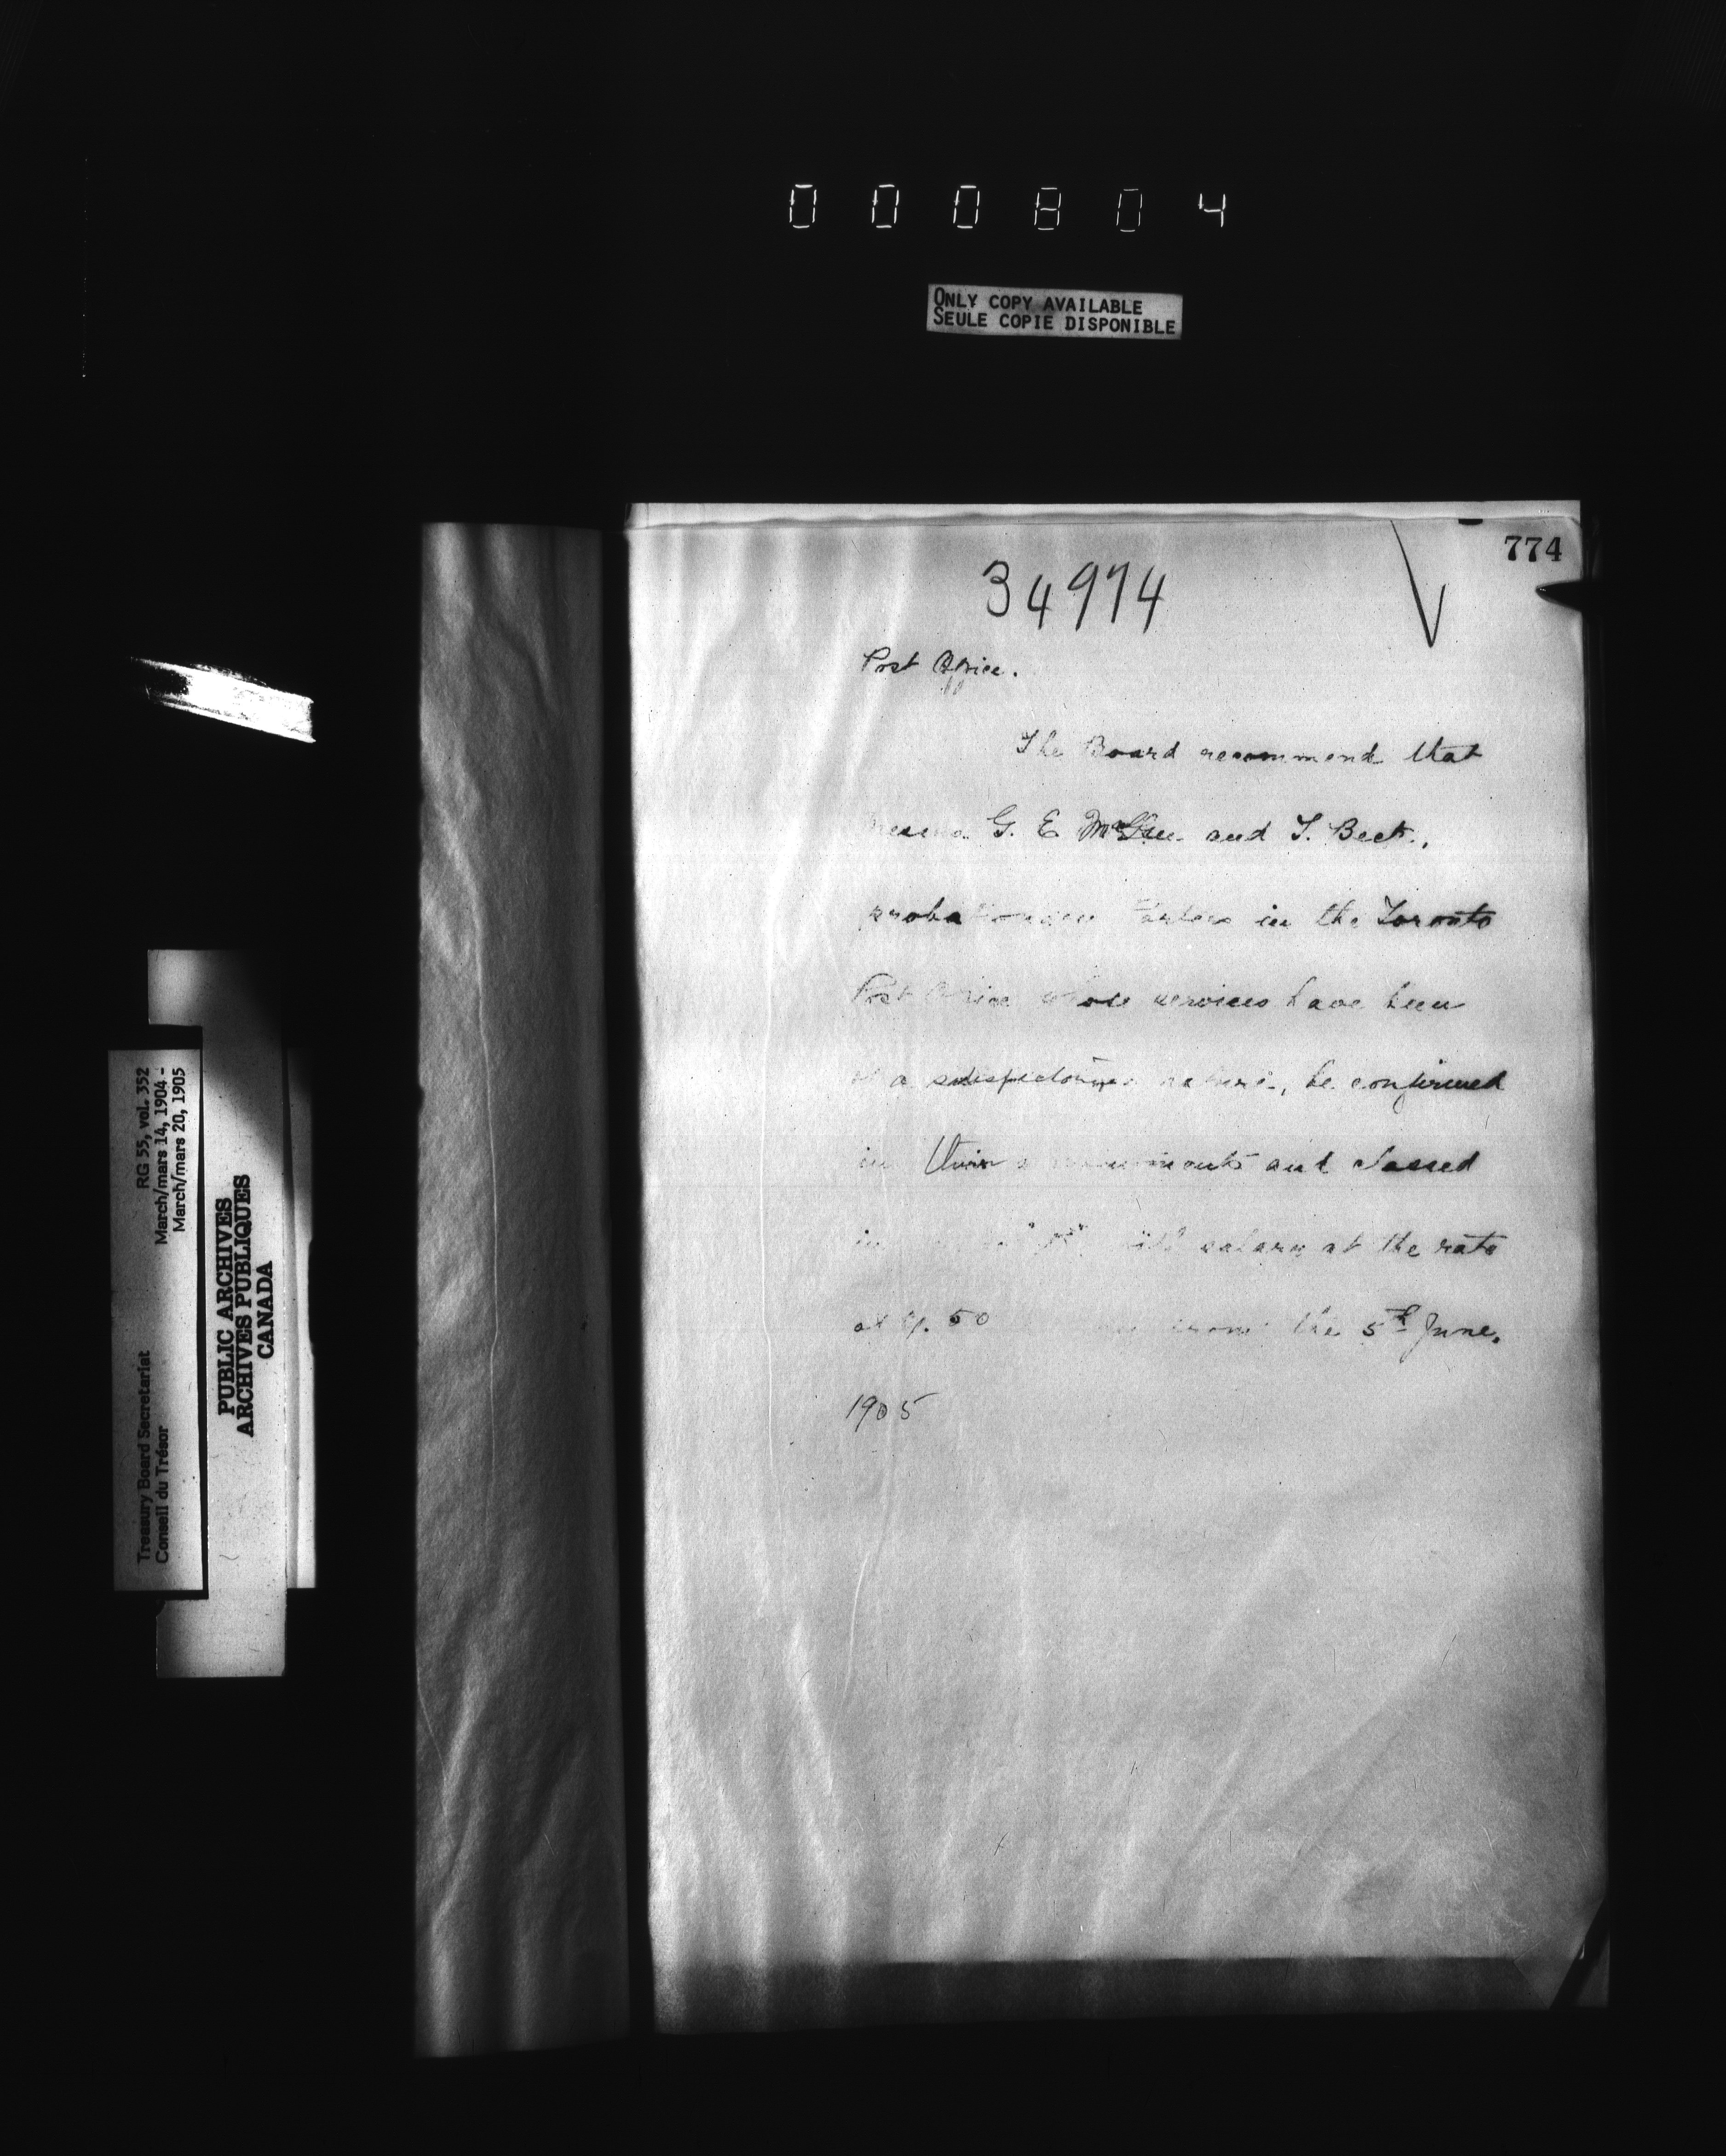 000804
ONLY COPY AVAILABLE
SEULE COPIE DISPONIBLE
774
34974
Post Office.
The Board recommend that
G. E. and T. Beck,
in the Toronto
Post Office whose services have been
a satisfactory nature, be confirmed
in their and classed
in salary at the rate
of 50 from the 5th June,
1905
RG 55, vol. 352
March/mars 14, 1904 -
March/mars 20, 1905
Treasury Board Secretariat
Conseil du Trésor
PUBLIC ARCHIVES
ARCHIVES PUBLIQUES
CANADA